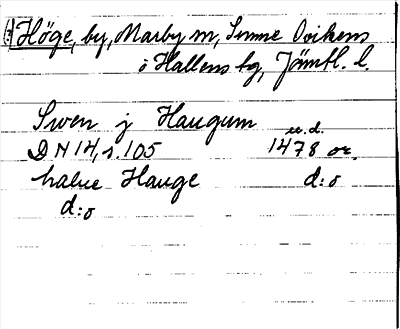 Höge, by, Marby sn, Sunne Ovikens
o Hallens tg, Jämtl. l.
Swen j Haugum
u.d.
DN 14, s. 105 1478 or.
halue Hauge d:o
d:o